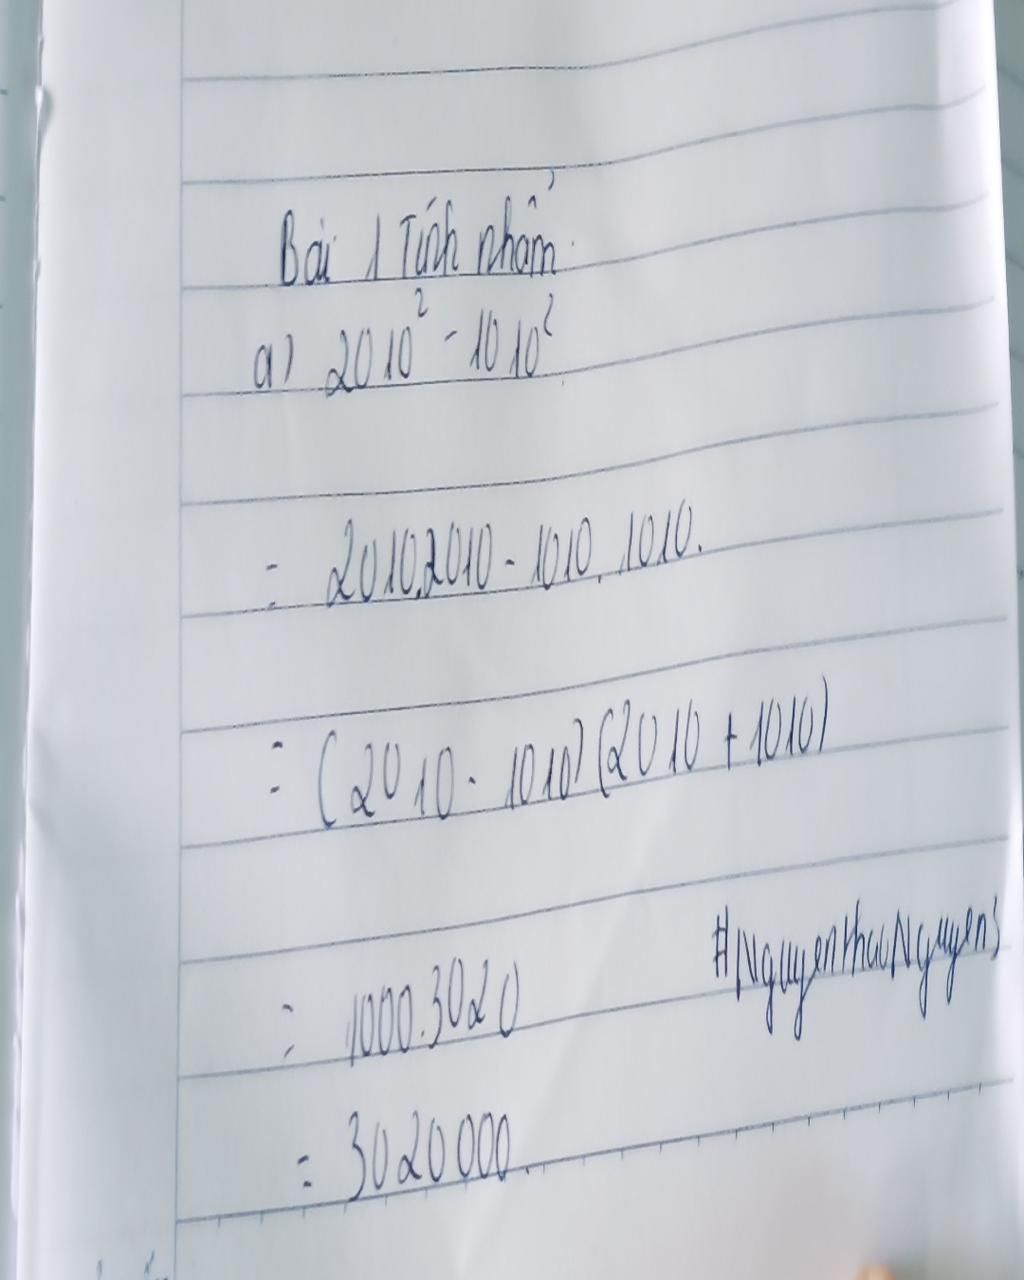 Bài 1 Tính nhẩm
a) 2010² - 1010²
= 2010.2010 - 1010.1010.
= (2010 - 1010)(2010 + 1010)
= 1000.3020
#NguyenthuNguyens
= 3020000.